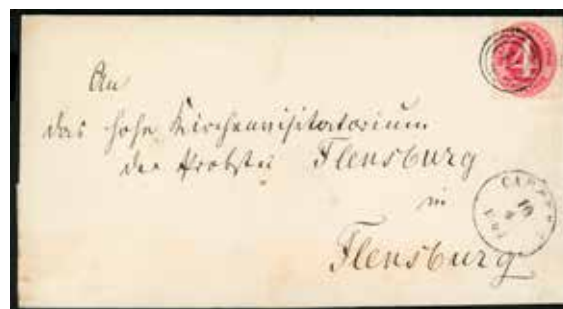 An
das hohe Kirchenvisitatorium
der Probstei Flensburg
in
Flensburg
4